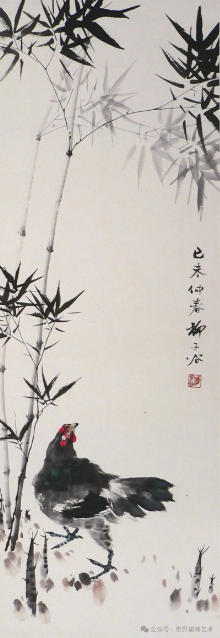 己未仲春柳子谷
公众号·世界巅峰艺术